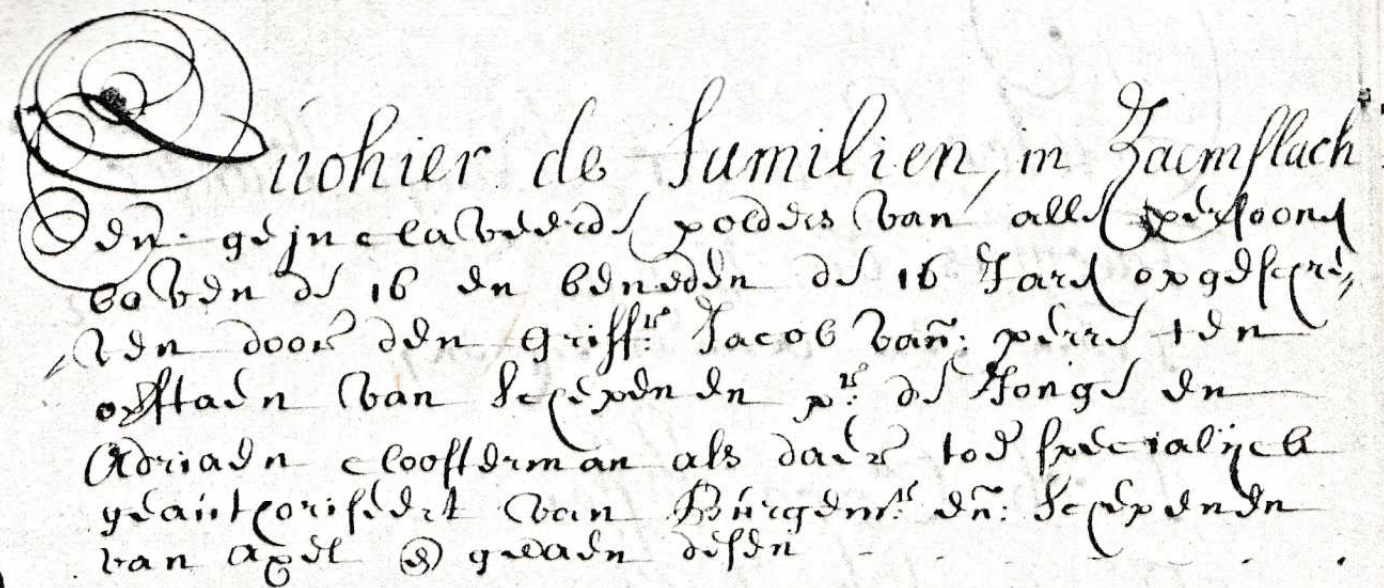 Quohier de familien, in Zaemslach
en geinclaveerde polders van alle persoone
boven de 16 en beneden de 16 Jare opgeschre„
„ven door den Griffr: Jacob van: perre ten
opstaen van Schepenen pr: de Jonge en
Adriaen cloosterman als daer toe specialijck
geauthoriseert van Burgemrs: en: Schepenen
van Axel gedaen desen